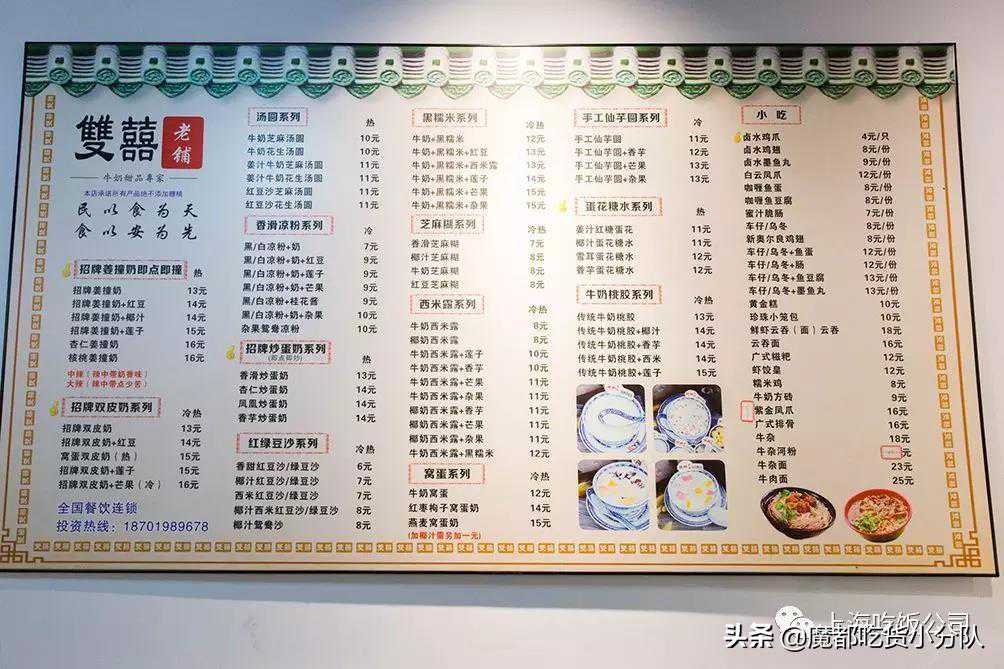 雙囍
老鋪
牛奶甜品专家
本店承诺所有产品绝不添加糖精
民以食为天
食以安为先
招牌姜撞奶即点即撞 热
招牌姜撞奶 13元
招牌姜撞奶+红豆 14元
招牌姜撞奶+椰汁 14元
招牌姜撞奶+莲子 15元
杏仁姜撞奶 16元
核桃姜撞奶 16元
中辣（辣中带奶香味）
大辣（辣中带点少苦）
招牌双皮奶系列 冷热
招牌双皮奶 13元
招牌双皮奶+红豆 14元
窝蛋双皮奶（热） 15元
招牌双皮奶+莲子 15元
招牌双皮奶+芒果（冷） 16元
全国餐饮连锁
投资热线：18701989678
汤圆系列 热
牛奶芝麻汤圆 10元
牛奶花生汤圆 10元
姜汁牛奶芝麻汤圆 11元
姜汁牛奶花生汤圆 11元
红豆沙芝麻汤圆 11元
红豆沙花生汤圆 11元
香滑凉粉系列 冷
黑/白凉粉+奶 7元
黑/白凉粉+奶+红豆 9元
黑/白凉粉+奶+莲子 9元
黑/白凉粉+奶+芒果 9元
黑/白凉粉+桂花酱 9元
黑/白凉粉+奶+杂果 10元
杂果鸳鸯凉粉 10元
招牌炒蛋奶系列
（即点即炒） 热
香滑炒蛋奶 13元
杏仁炒蛋奶 14元
凤凰炒蛋奶 14元
香芋炒蛋奶 14元
红绿豆沙系列 冷热
香甜红豆沙/绿豆沙 6元
椰汁红豆沙/绿豆沙 7元
西米红豆沙/绿豆沙 7元
椰汁西米红豆沙/绿豆沙 8元
椰汁鸳鸯沙 8元
黑糯米系列 冷热
牛奶+黑糯米 12元
牛奶+黑糯米+红豆 13元
牛奶+黑糯米+西米露 13元
牛奶+黑糯米+莲子 14元
牛奶+黑糯米+芒果 15元
牛奶+黑糯米+杂果 15元
芝麻糊系列 冷热
香滑芝麻糊 7元
椰汁芝麻糊 8元
牛奶芝麻糊 8元
红豆芝麻糊 8元
西米露系列 冷热
牛奶西米露 8元
椰奶西米露 8元
牛奶西米露+莲子 10元
牛奶西米露+香芋 10元
牛奶西米露+芒果 11元
牛奶西米露+杂果 11元
椰奶西米露+香芋 11元
椰奶西米露+芒果 11元
椰奶西米露+杂果 11元
牛奶西米露+黑糯米 12元
窝蛋系列 冷热
牛奶窝蛋 12元
红枣枸子窝蛋奶 14元
燕麦窝蛋奶 15元
（加椰汁需另加一元）
手工仙芋圆系列 冷
手工仙芋圆 11元
手工仙芋圆+香芋 12元
手工仙芋圆+芒果 13元
手工仙芋圆+杂果 13元
蛋花糖水系列 热
姜汁红糖蛋花 11元
椰汁蛋花糖水 12元
雪耳蛋花糖水 12元
香芋蛋花糖水 12元
牛奶桃胶系列 冷热
传统牛奶桃胶 13元
传统牛奶桃胶+椰汁 14元
传统牛奶桃胶+香芋 14元
传统牛奶桃胶+西米 14元
传统牛奶桃胶+莲子 15元
小吃
卤水鸡爪 4元/只
卤水鸡翅 8元/份
卤水墨鱼丸 9元/份
白云凤爪 12元/份
咖喱鱼蛋 8元/份
咖喱鱼豆腐 8元/份
蜜汁脆肠 7元/份
车仔/乌冬 8元/份
新奥尔良鸡翅 8元/份
车仔/乌冬+鱼蛋 12元/份
车仔/乌冬+肠 12元/份
车仔/乌冬+鱼豆腐 13元/份
车仔/乌冬+墨鱼丸 13元/份
黄金糕 10元
珍珠小笼包 10元
鲜虾云吞（面）云吞 18元
云吞面 16元
广式糍粑 12元
虾饺皇 12元
糯米鸡 8元
牛奶方砖 9元
紫金凤爪 16元
广式排骨 16元
牛杂 18元
牛杂河粉 元
牛杂面 23元
牛肉面 25元
上海吃饭公司
头条@魔都吃货小分队